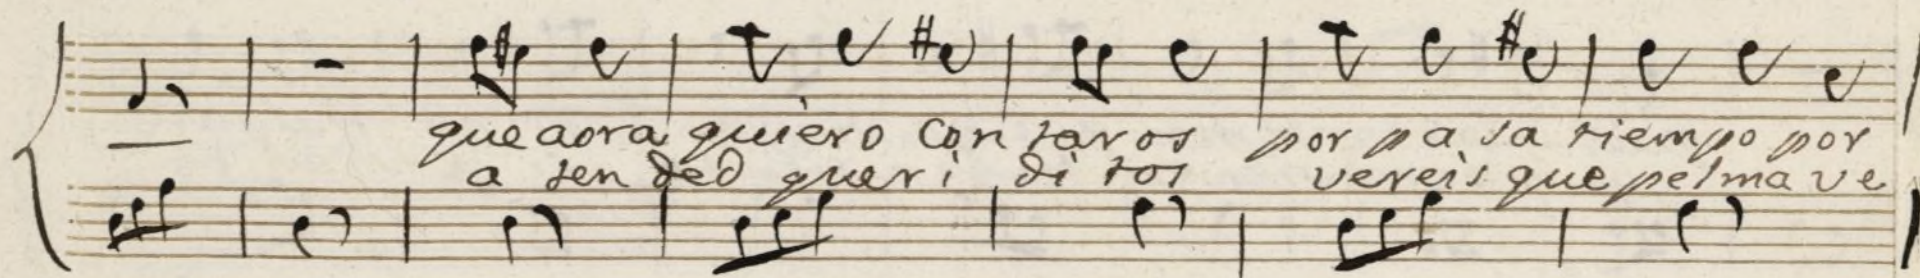 que aora quiero Con taros por pa sa tiempo por
a ten ded queri di tos vereis que pelma ve